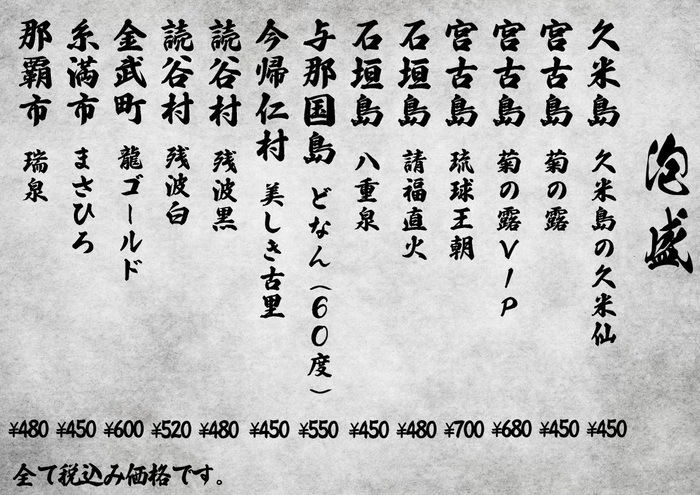 泡盛
久米島 久米島の久米仙 ¥450
宮古島 菊の露 ¥450
宮古島 菊の露VIP ¥680
宮古島 琉球王朝 ¥700
石垣島 請福直火 ¥480
石垣島 八重泉 ¥450
与那国島 どなん(60度) ¥550
今帰仁村 美しき古里 ¥450
読谷村 残波黒 ¥480
読谷村 残波白 ¥520
金武町 龍ゴールド ¥600
糸満市 まさひろ ¥450
那覇市 瑞泉 ¥480
全て税込み価格です。